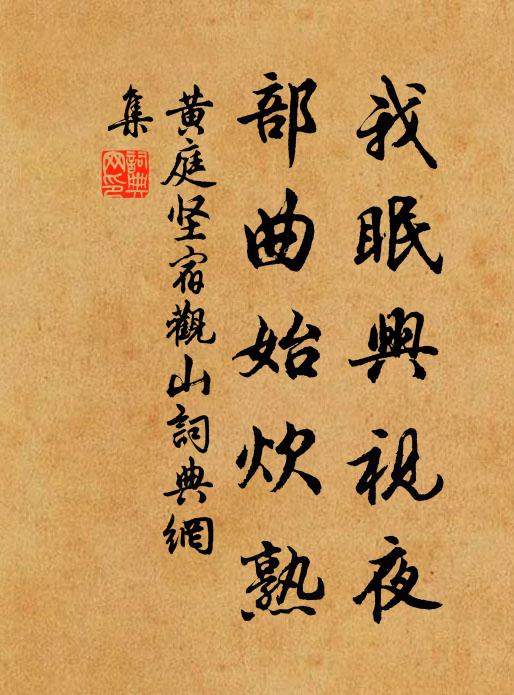 我眠興視夜
部曲始炊熟
黄庭坚宿觀山詞典網
集
詞典
网印